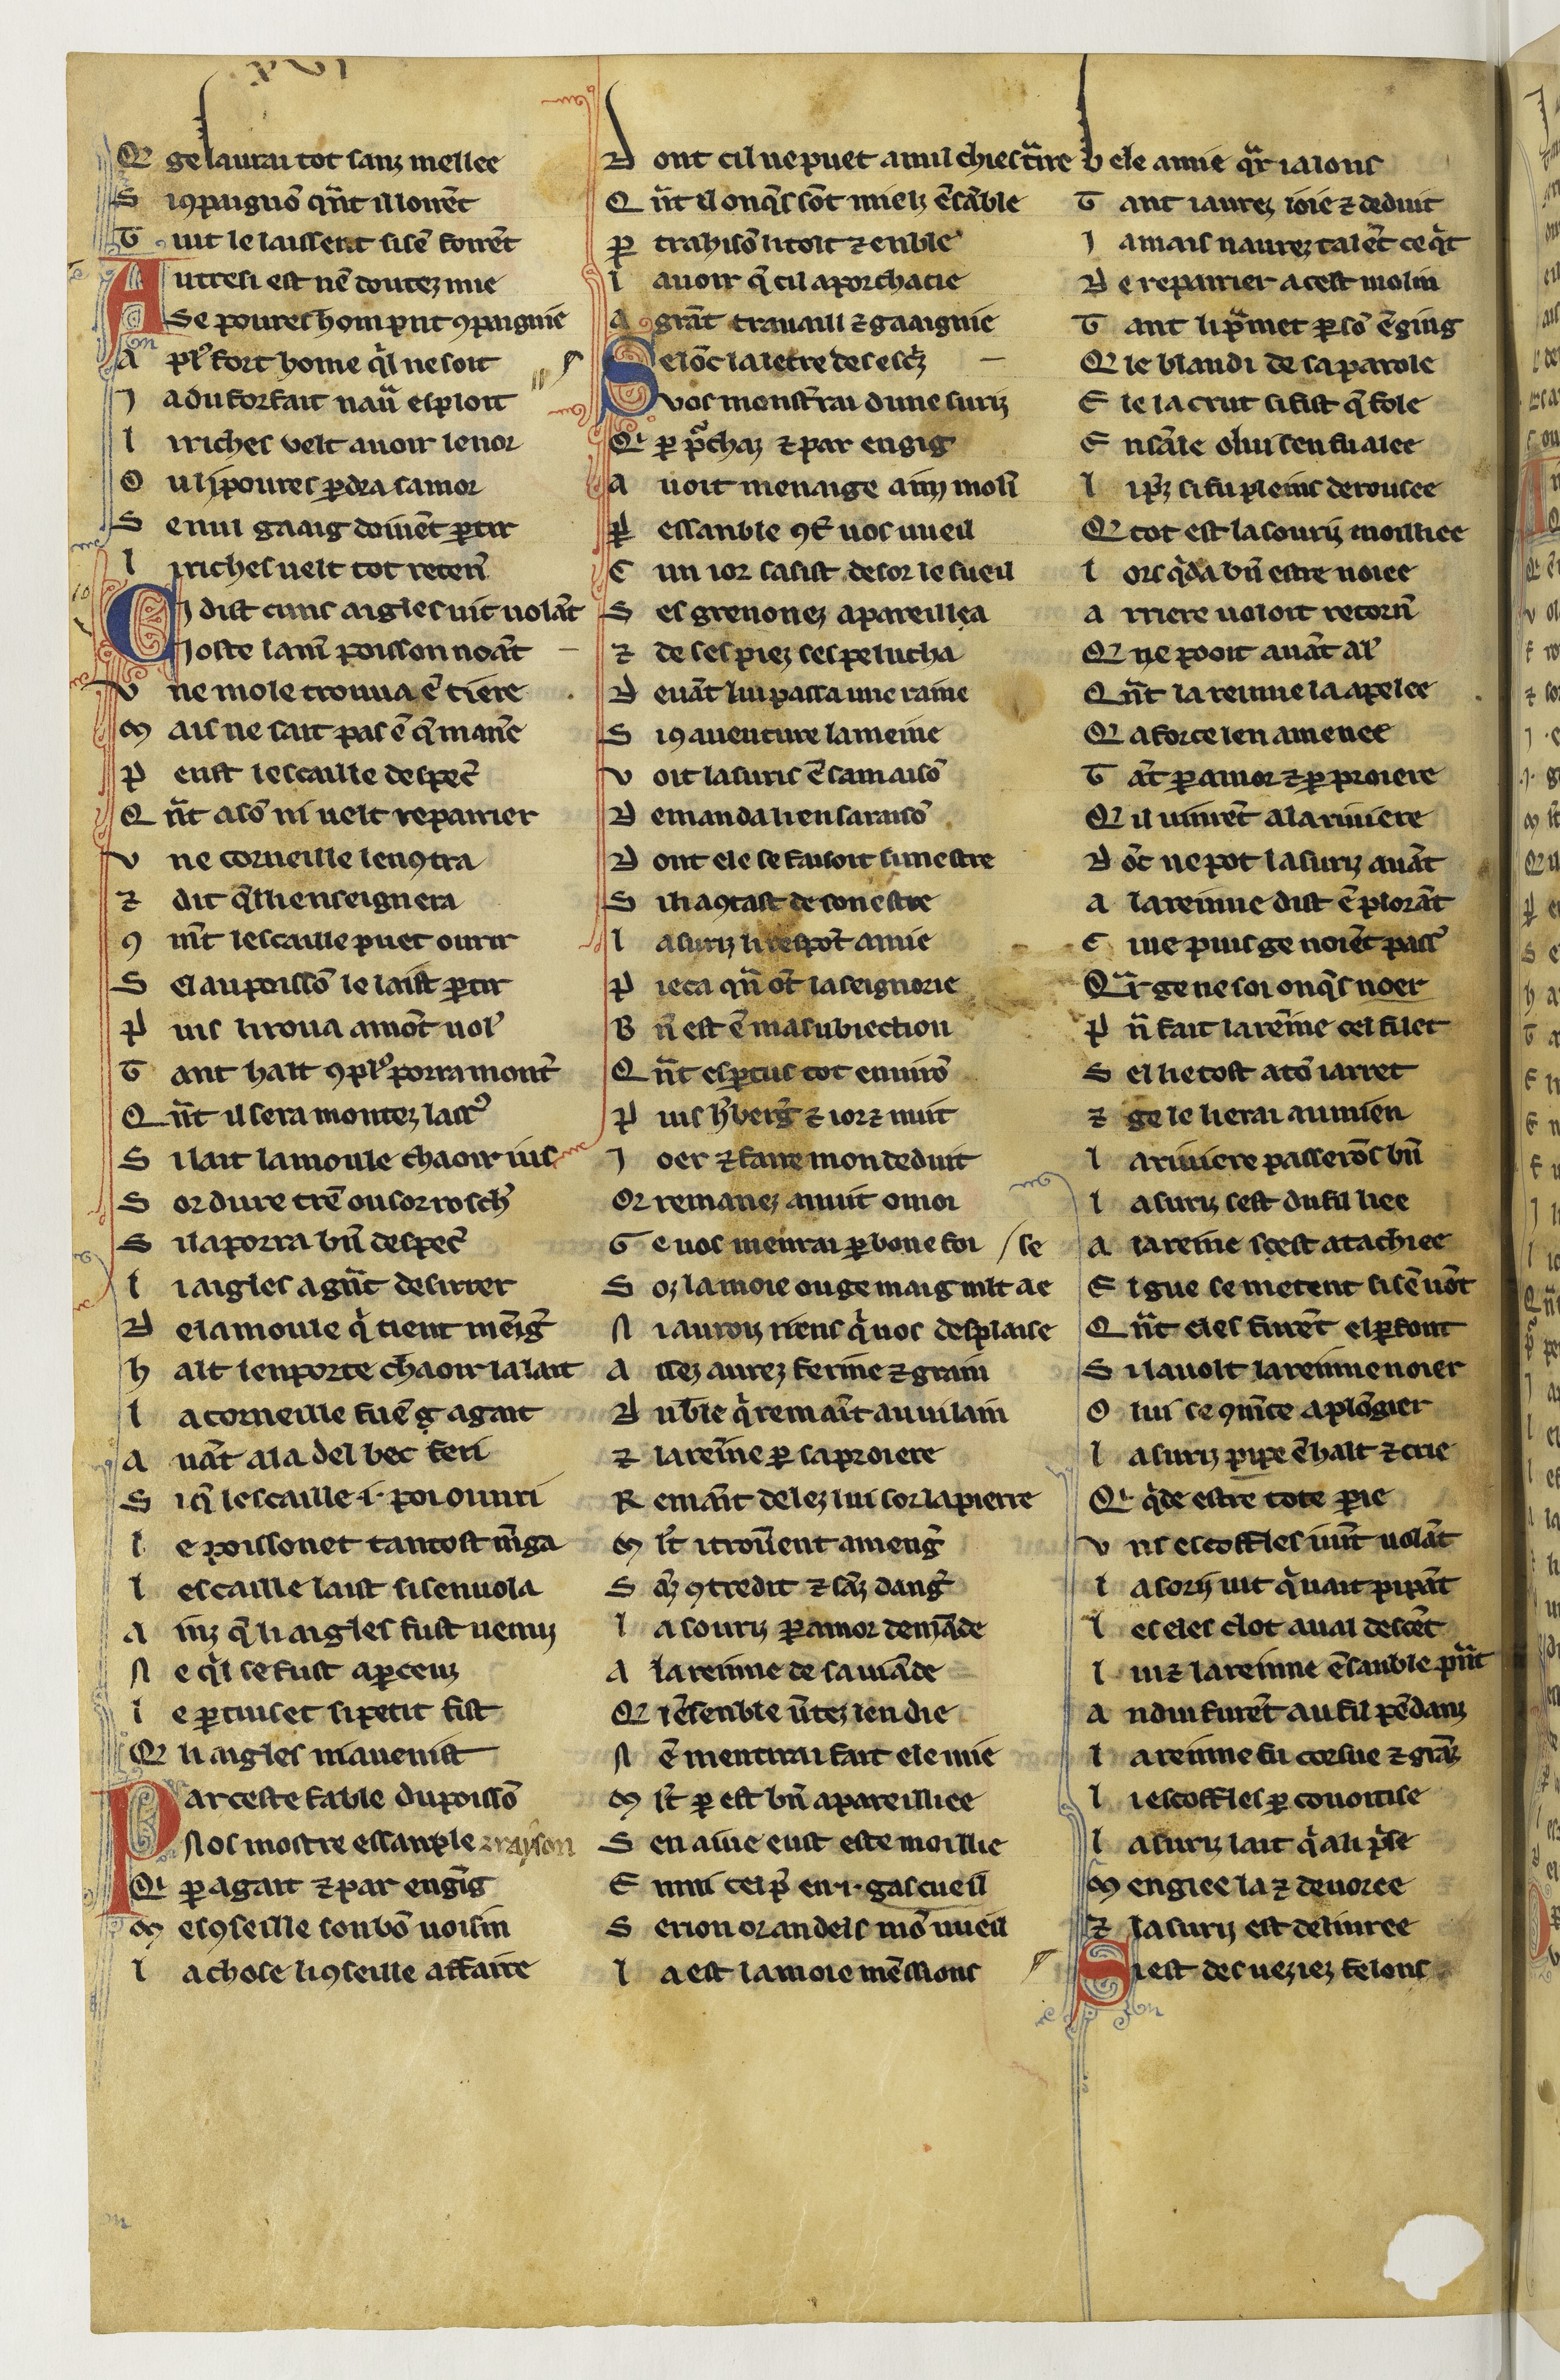 xvi
Q ge laurai tot sanz mellee
S i ꝯpaignõ qñt il loirẽt
T uit le laissent si sẽ foirẽt
A utresi est nẽ doutez mie
Se poures hom prnt ꝯpaignie
A pl' fort home q̍l ne soit
J a du forfait nau᷑ esploit
L i riches velt auoir lenor
O u li poures ꝑdra samor
S e nul gaaig doiuẽt ꝑtir
L i riches uelt tot reten᷑
C i dist cuns aigles uit uolãt
Joste la m᷑ poisson noãt
V ne mole trouua ẽ tiere
M ais ne sait pas ẽ q̃l man᷑e
P eust lescaille despec᷑
Q ñt a sõ ni uelt repairier
V ne corneille lencꝯtra
⁊ dit q̃lli enseignera
ꝯ mẽt lescaille puet ourir
S el au poissõ le laist ꝑtir
P uis li roua amõt uol᷑
T ant halt ꝯ pl' porra mont᷑
Q ñt il sera montez lass᷑
S i lait la moule chaoir ius
S or dure tr᷑e ou sor rosch᷑
S i la porra bñ despec᷑
L i aigles a gñt desirrer
D e la moule q̍ tient mẽg᷑
H alt lenporte chaoir la lait
L a corneille fu ẽ g̃ agait
A uãt ala del bec feri
S i q̃ lescaille .i. poi ouuri
L e poissonet tantost mẽga
L escaille laist si senuola
A inz q̃ li aigles fust uenuz
N e q̍l se fust aꝑceuz
L e ꝑtuiset si petit fist
Q li aigles ni auenist
P ar ceste fable du poissõ
Nos mostre essanple ⁊ rayson
Q i ꝑ agait ⁊ par engig
M escꝯseille son bõ uoisin
L a chose li ꝯseille a ffaire
D ont cil ne puet a nul chief t᷑ire
Q ñt il onq̃s sõt mielz ẽsãble
P trahisõ li tolt ⁊ enble
L auoir q̃ cil a porchacie
A grãt trauaill ⁊ gaaignie
S elõc la letre des escz̃
Vos monst᷑rai dune suriz
Q i ꝑ p̃chaz ⁊ par engig
A uoit menaige a .i. molĩ
P essanble ꝯter uos uueil
C un ior sasist desor le sueil
S es grenonez apareilla
⁊ de ses piez sespelucha
D euãt lui passa une raine
S i ꝯ auenture la meine
V oit la suris ẽ sa maisõ
D emanda li en sa raisõ
D ont ele se faisoit si mestre
S i li aꝯtast de son estre
L a suriz li respõt amie
P ieca qñ ot la seignorie
B ñ est ẽ ma subiection
Q ñt esꝑtus tot enuirõ
P uis h᷑berg᷑ ⁊ ior ⁊ nuit
J oer ⁊ faire mon deduit
Or remanez a nuit o moi
G e uos menrai ꝑ bone foi / se
S oz la moie ou ge maig mlt ae
N i auroiz riens q̍ uos desplaise
A ssez aurez ferine ⁊ grain
D u ble q̍ remaĩt au uilain
⁊ la reine ꝑ sa proiere
R emãit delez lui sor la pierre
M lt i trouuent a meng᷑
S ãz ꝯtredit ⁊ sãz dang᷑
L a souriz ꝑ amor demãde
A la reinne de sa uiãde
Q i ẽ senble u᷑itez len die
N ẽ mentirai fait ele mie
M lt ꝑ est bñ apareilliee
S en aiue eust este moillie
E nmi cel p᷑ en .i. gascueil
S erion or andels mõ uueil
L a est la moie mẽssions
B ele amie q̃r i alons
T ant i aurez ioie ⁊ deduit
J amais naurez talẽt ce q̍t
D e repairrier a cest molin
T ant li p᷑met ꝑ sõ ẽging
Q le blandi de sa parole
E le la crut si fist q̃ fole
E nsãle o lui sen fu alee
L i pz̃ si fu pleins derousee
Q tot est la souriz moilliee
L ors q̍da bñ estre noiee
A rriere uoloit retorn᷑
Q ne pooit auãt al᷑
Q ñt la reinne la apelee
Q a force len a menee
T ãt ꝑ amor ⁊ ꝑ proiere
Q il uinrẽt a la riuiere
D õc ne pot la suriz auãt
A la reinne dist ẽ plorãt
C iue puis ge noiẽt pass᷑
Q᷑r ge ne soi onq̃s noer
P ñ fait la reĩne cel filet
S el lie tost a tõ iarret
⁊ ge le lierai au mien
L a riuiere passerõs bñ
L a suriz sest du fil liee
A la reine sest atachiee
E lgue se metent si sẽ uõt
Q ñt eles furẽt el ꝑfont
S i la uolt la reinne noier
O lui se ꝯmẽce a plõgier
L a suriz pipe ẽ halt ⁊ crie
Q i q̍de estre tote ꝑie
V ns escoffles uint uolãt
L a soriz uit q̍ uait pipãt
L es eles clot aual descẽt
L ui ⁊ la reinne ẽsanble pñt
A ndui furẽt au fil pẽdanz
L a reinne fu corsue ⁊ grãz
L i escoffles ꝑ couoitise
L a suriz lait q̍ a li p᷑se
M engiee la ⁊ deuoree
⁊ la suriz est deliuree
S i est des ueziez felons